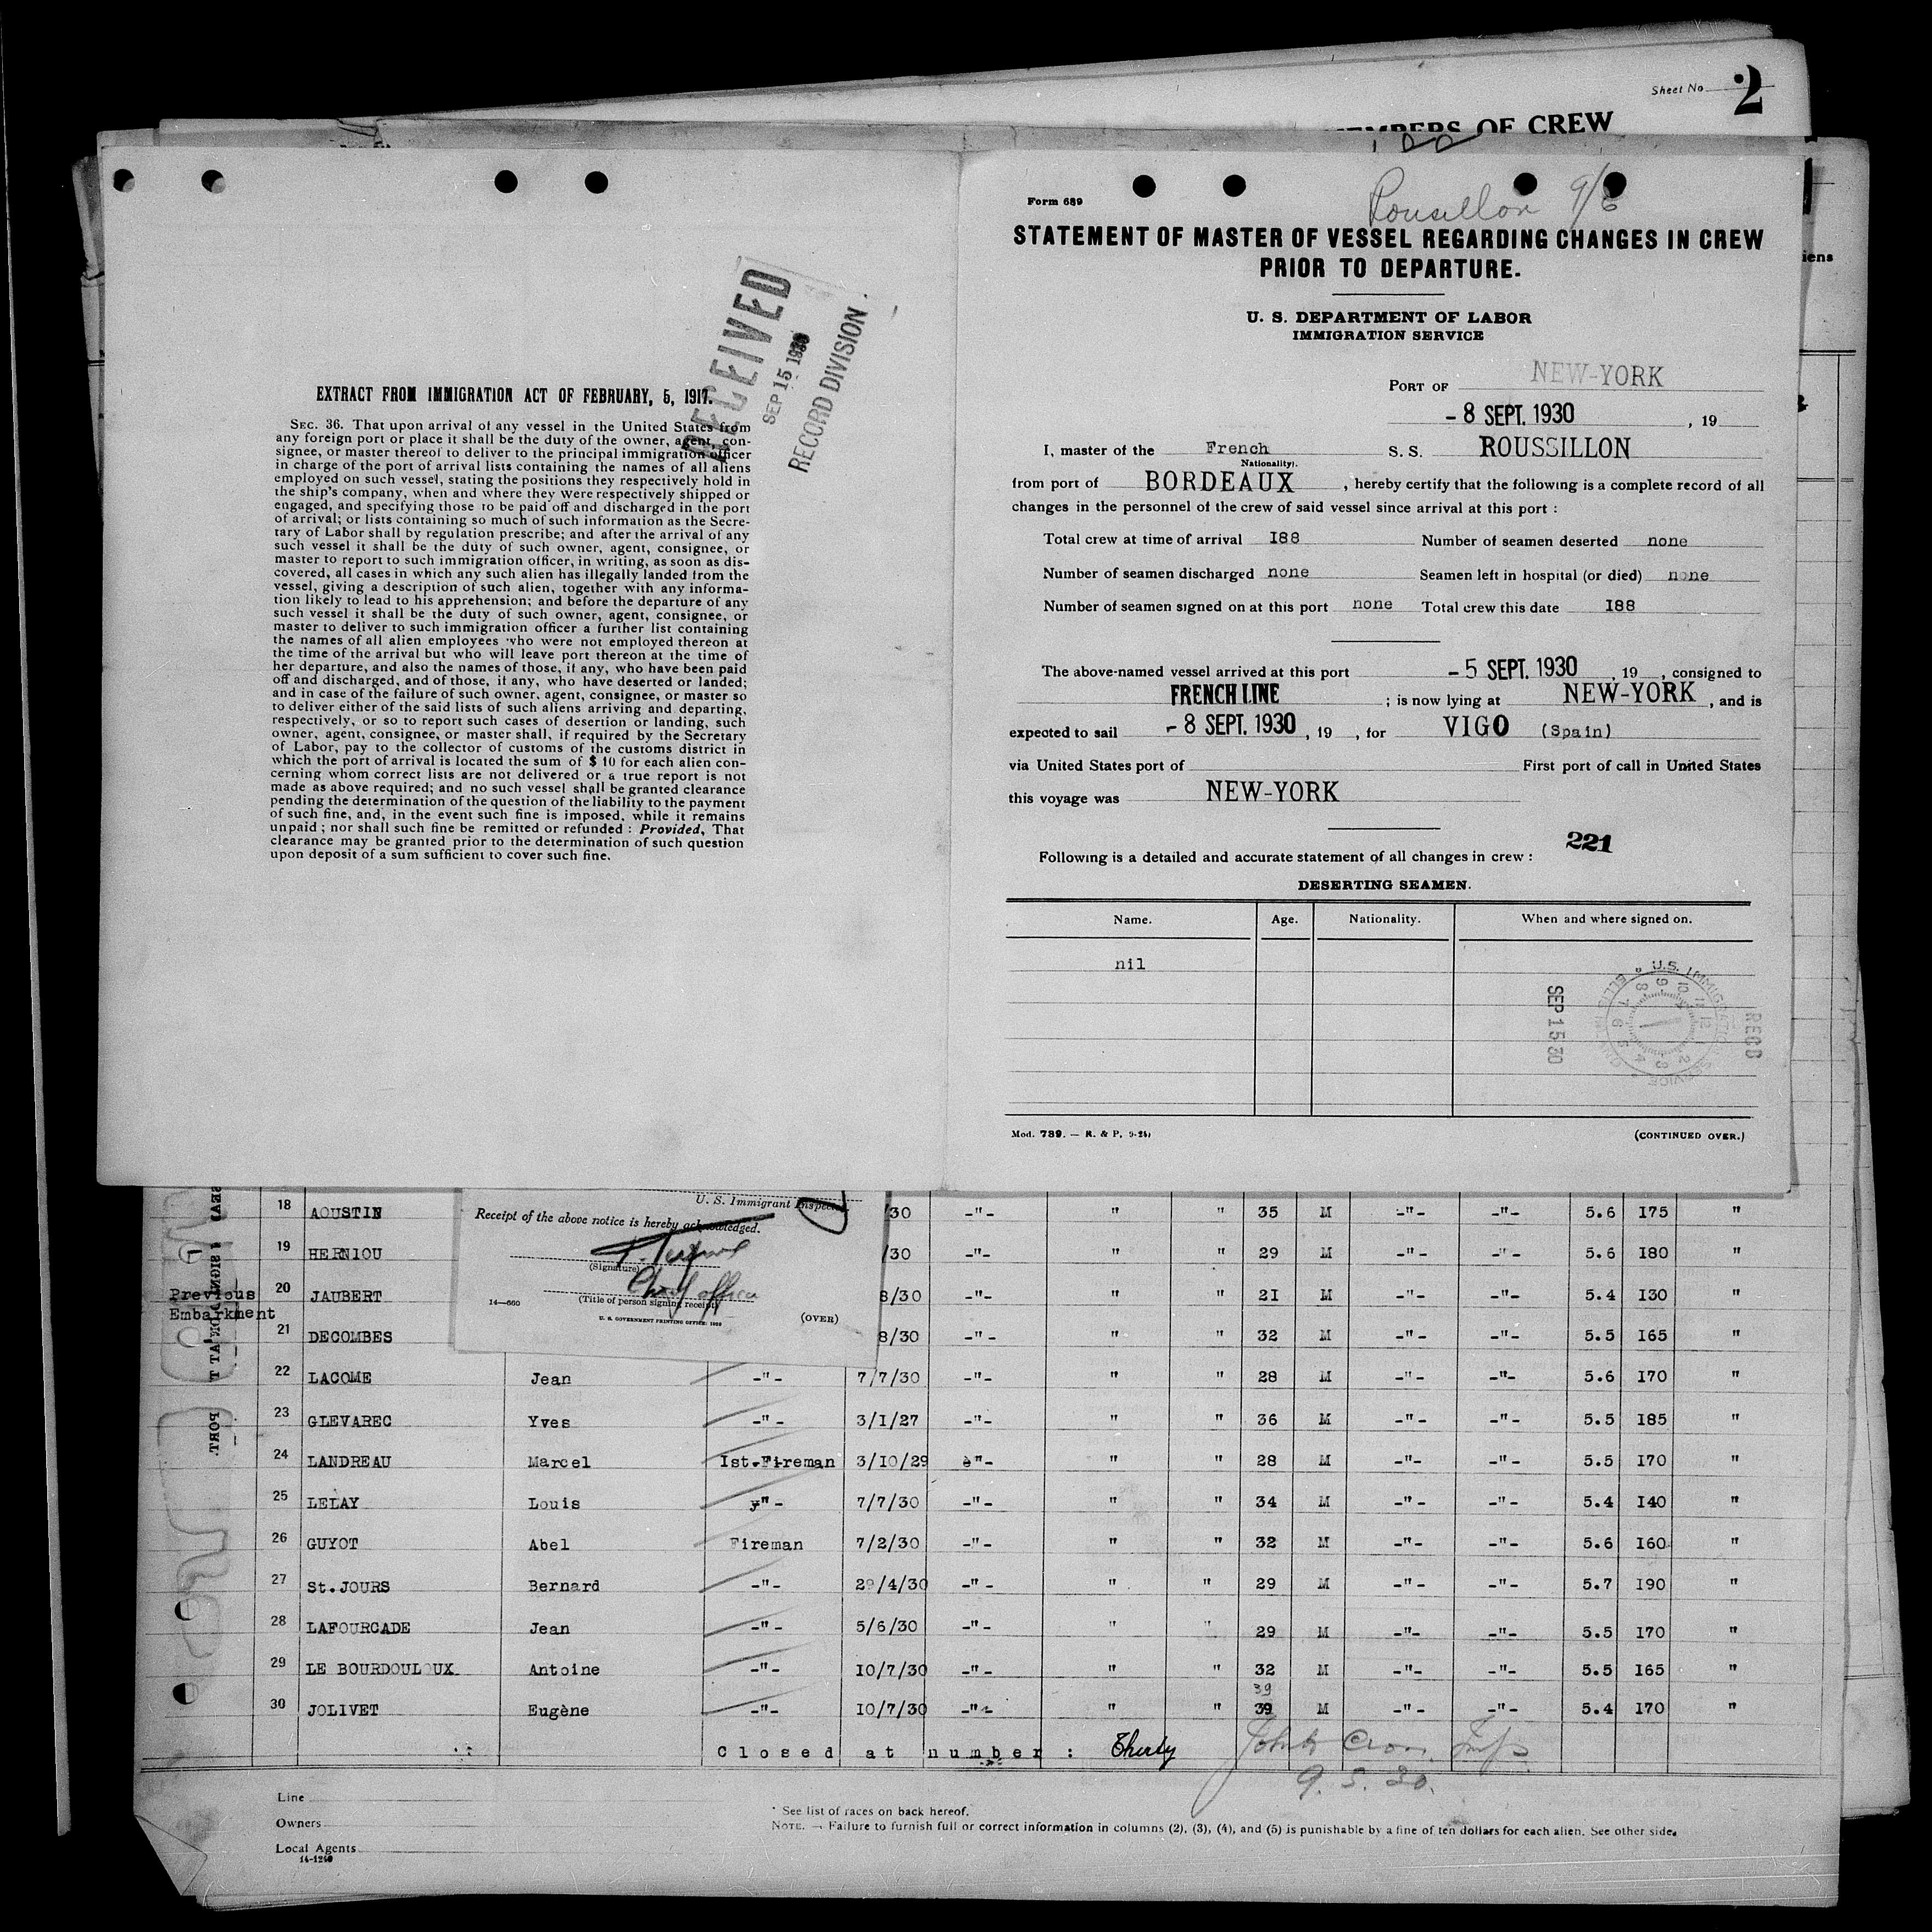 Sheet No 2
MEMBERS OF CREW
EXTRACT FROM IMMIGRATION ACT OF FEBRUARY, 5, 1917.
SEC. 36. That upon arrival of any vessel in the United States from
any foreign port or place it shall be the duty of the owner, agent, con-
signee, or master thereof to deliver to the principal immigration officer
in charge of the port of arrival lists containing the names of all aliens
employed on such vessel, stating the positions they respectively hold in
the ship's company, when and where they were respectively shipped or
engaged, and specifying those to be paid off and discharged in the port
of arrival; or lists containing so much of such information as the Secre-
tary of Labor shall by regulation prescribe; and after the arrival of any
such vessel it shall be the duty of such owner, agent, consignee, or
master to report to such immigration officer, in writing, as soon as dis-
covered, all cases in which any such alien has illegally landed from the
vessel, giving a description of such alien, together with any informa-
tion likely to lead to his apprehension; and before the departure of any
such vessel it shall be the duty of such owner, agent, consignee, or
master to deliver to such immigration officer a further list containing
the names of all alien employees who were not employed thereon at
the time of the arrival but who will leave port thereon at the time of
her departure, and also the names of those, if any, who have been paid
off and discharged, and of those, if any, who have deserted or landed;
and in case of the failure of such owner, agent, consignee, or master so
to deliver either of the said lists of such aliens arriving and departing,
respectively, or so to report such cases of desertion or landing, such
owner, agent, consignee, or master shall, if required by the Secretary
of Labor, pay to the collector of customs of the customs district in
which the port of arrival is located the sum of $ 10 for each alien con-
cerning whom correct lists are not delivered or a true report is not
made as above required; and no such vessel shall be granted clearance
pending the determination of the question of the liability to the payment
of such fine, and, in the event such fine is imposed, while it remains
unpaid ; nor shall such fine be remitted or refunded : Provided, That
clearance may be granted prior to the determination of such question
upon deposit of a sum sufficient to cover such fine.
RECEIVED
SEP 15 1930
RECORD DIVISION
Form 689
Rousillon 9/8
STATEMENT OF MASTER OF VESSEL REGARDING CHANGES IN CREW
PRIOR TO DEPARTURE.
U. S. DEPARTMENT OF LABOR
IMMIGRATION SERVICE
PORT OF NEW-YORK
- 8 SEPT. 1930 , 19
I, master of the French S. S. ROUSSILLON
Nationality.
from port of BORDEAUX , hereby certify that the following is a complete record of all
changes in the personnel of the crew of said vessel since arrival at this port :
Total crew at time of arrival I88 Number of seamen deserted none
Number of seamen discharged none Seamen left in hospital (or died) none
Number of seamen signed on at this port none Total crew this date I88
The above-named vessel arrived at this port - 5 SEPT. 1930 , 19 , consigned to
FRENCH LINE ; is now lying at NEW-YORK , and is
expected to sail - 8 SEPT. 1930 , 19 , for VIGO (Spain)
via United States port of First port of call in United States
this voyage was NEW-YORK
221
Following is a detailed and accurate statement of all changes in crew :
DESERTING SEAMEN.
Name. Age. Nationality. When and where signed on.
nil
SEP 15 30
RECD
U.S. IMMIGRATION SERVICE
Mod. 789. — R. & P. 9-24) (CONTINUED OVER.)
U. S. Immigrant Inspector
Receipt of the above notice is hereby acknowledged.
(Signature)
Chief officer
(Title of person signing receipt)
14—660 (OVER)
U. S. GOVERNMENT PRINTING OFFICE: 1928
Previous
Embarkment
18 AOUSTIN /30 -"- " " 35 M -"- -"- 5.6 I75 "
19 HERNIOU /30 -"- " " 29 M -"- -"- 5.6 I80 "
20 JAUBERT 8/30 -"- " " 21 M -"- -"- 5.4 I30 "
21 DECOMBES 8/30 -"- " " 32 M -"- -"- 5.5 I65 "
22 LACOME Jean -"- 7/7/30 -"- " " 28 M -"- -"- 5.6 I70 "
23 GLEVAREC Yves -"- 3/1/27 -"- " " 36 M -"- -"- 5.5 I85 "
24 LANDREAU Marcel Ist.Fireman 3/10/29 -"- " " 28 M -"- -"- 5.5 I70 "
25 LELAY Louis -"- 7/7/30 -"- " " 34 M -"- -"- 5.4 I40 "
26 GUYOT Abel Fireman 7/2/30 -"- " " 32 M -"- -"- 5.6 I60 "
27 St.JOURS Bernard -"- 29/4/30 -"- " " 29 M -"- -"- 5.7 I90 "
28 LAFOURCADE Jean -"- 5/6/30 -"- " " 29 M -"- -"- 5.5 I70 "
29 LE BOURDOULOUX Antoine -"- 10/7/30 -"- " " 32 M -"- -"- 5.5 I65 "
39
30 JOLIVET Eugène -"- 10/7/30 -"- " " 39 M -"- -"- 5.4 I70 "
Closed at number : Thirty
9. 5. 30.
Line
Owners
Local Agents
14-1240
* See list of races on back hereof.
NOTE. — Failure to furnish full or correct information in columns (2), (3), (4), and (5) is punishable by a fine of ten dollars for each alien. See other side.